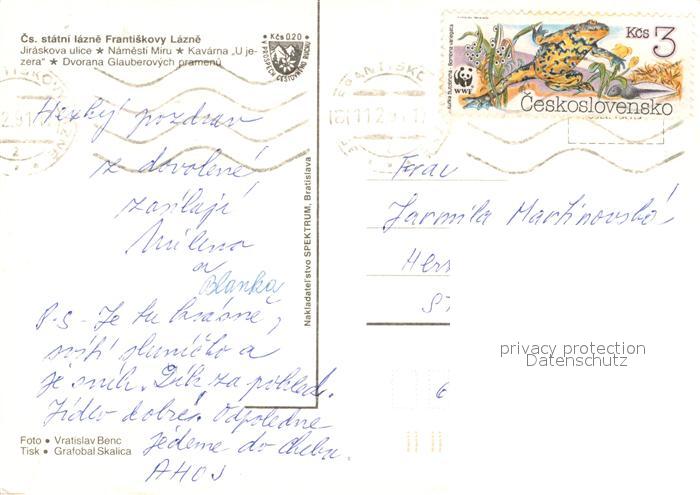 Čs. státní lázně Františkovy Lázně
Jiráskova ulice ★ Náměstí Míru ★ Kavárna „U je-
zera“ ★ Dvorana Glauberových pramenů
Kčs 0.20
Hezký pozdrav
z dovolené
zasílají
Milena
a
Blanka
P.S - Je tu krásně,
svítí sluníčko a
je sníh. Dík za pohled.
Jídlo dobré. Odpoledne
jedeme do Chebu.
AHOJ
Foto • Vratislav Benc
Tisk • Grafobal Skalica
Nakladateľstvo SPEKTRUM, Bratislava
Kčs 3
WWF
Československo
11.2.91-17
Frau
Jarmila Martinovská
Her
St
6
privacy protection
Datenschutz